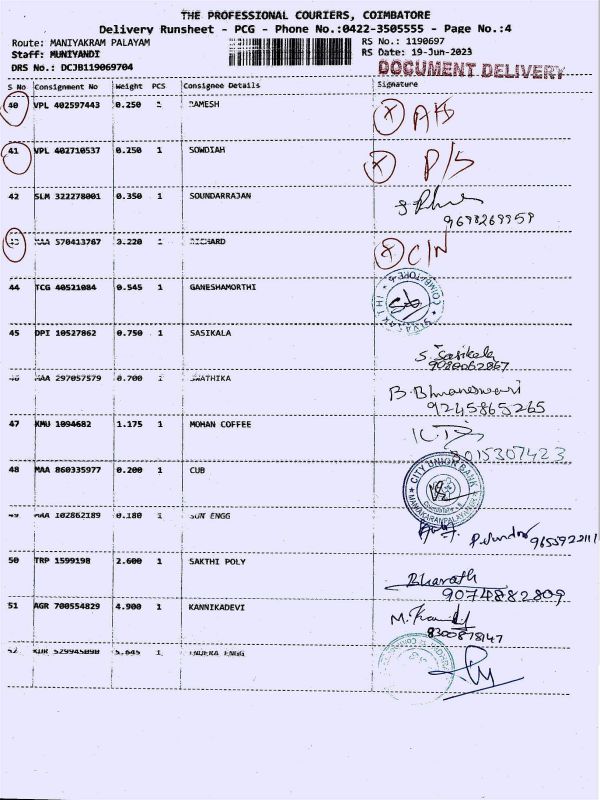 THE PROFESSIONAL COURIERS, COIMBATORE
Delivery Runsheet - PCG - Phone No.:0422-3505555 - Page No.:4
Route: MANIYAKRAM PALAYAM RS No.: 1190697
Staff: MUNIYANDI RS Date: 19-Jun-2023
DRS No.: DCJB119069704 DOCUMENT DELIVERY
S No Consignment No Weight PCS Consignee Details Signature
40 VPL 402597443 0.250 RAMESH X
41 VPL 402710537 0.250 1 SOWDIAH X P/S
42 SLM 322278001 0.350 1 SOUNDARRAJAN
9698269959
43 MAA 570413767 3.220 RICHARD X C/N
44 TCG 40521084 0.545 1 GANESHAMORTHI
45 DPI 10527862 0.750 1 SASIKALA S. Sasikala
9080062867
46 MAA 297057579 0.700 SWATHIKA B. Bhuvaneswari
9245865265
47 KMU 1094682 1.175 1 MOHAN COFFEE
8015307423
48 MAA 860335977 0.200 1 CUB CITY UNION BANK
49 MAA 102862189 0.180 1 SUN ENGG
50 TRP 1599198 2.600 1 SAKTHI POLY Bharath
9074882809
51 AGR 700554829 4.900 1 KANNIKADEVI
8300878147
52 KUR 529945090 5.645 1 ENGG